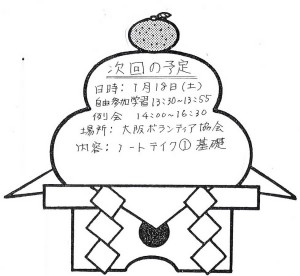 次回の予定
日時: 1月18日(土)
自由参加学習13:30~13:55
例会 14:00~16:30
場所: 大阪ボランティア協会
内容: ノートテイク① 基礎